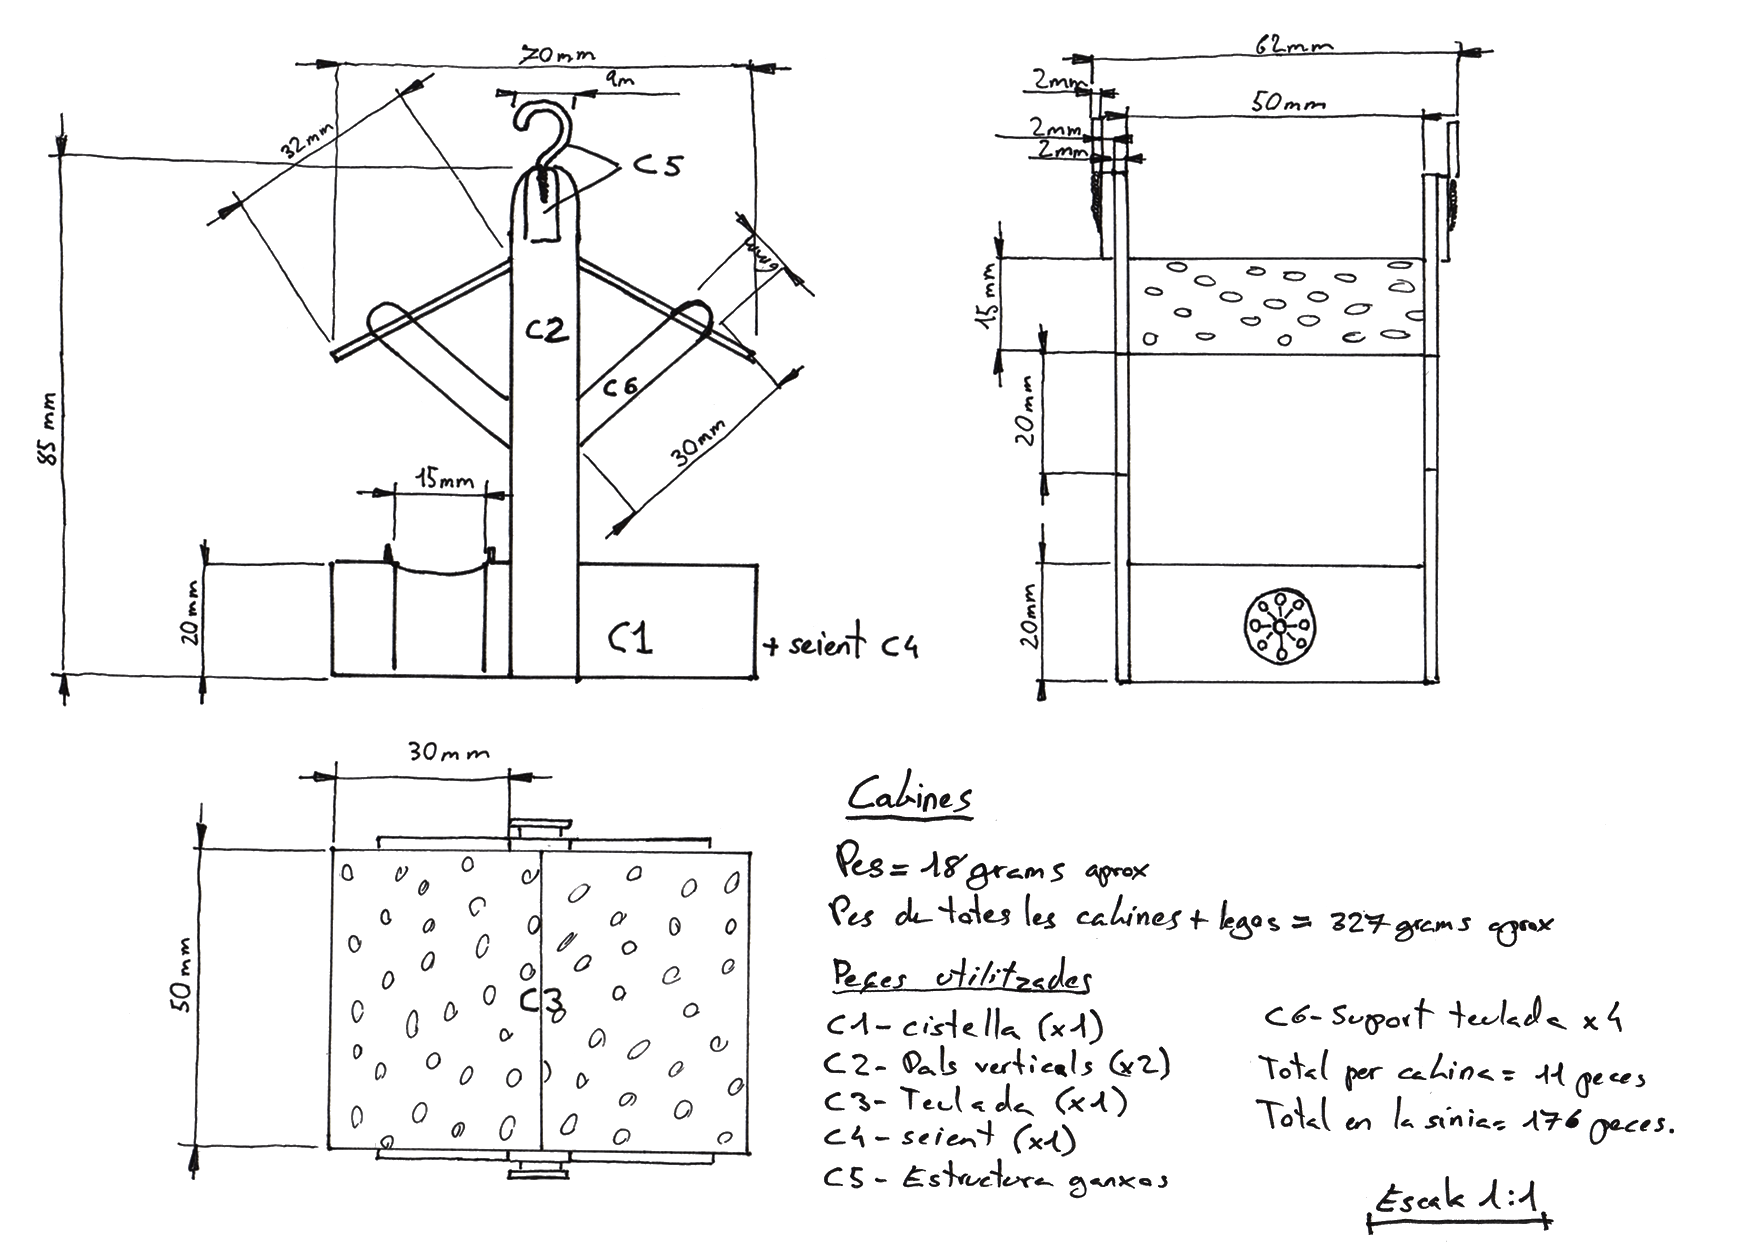 70mm
9m
32mm
C5
6mm
C2
C6
85 mm
30mm
15mm
20mm
C1
+ seient C4
62mm
2mm
50mm
2mm
2mm
15mm
20mm
20mm
30mm
50mm
C3
Cabines
Pes = 18 grams aprox
Pes de totes les cabines + legos = 327 grams aprox
Peçes utilitzades
C1 - cistella (x1)
C2 - Pals verticals (x2)
C3 - Teulada (x1)
C4 - seient (x1)
C5 - Estructura ganxos
C6 - Suport teulada x4
Total per cabina = 11 peces
Total en la sínia = 176 peces.
Escala 1:1